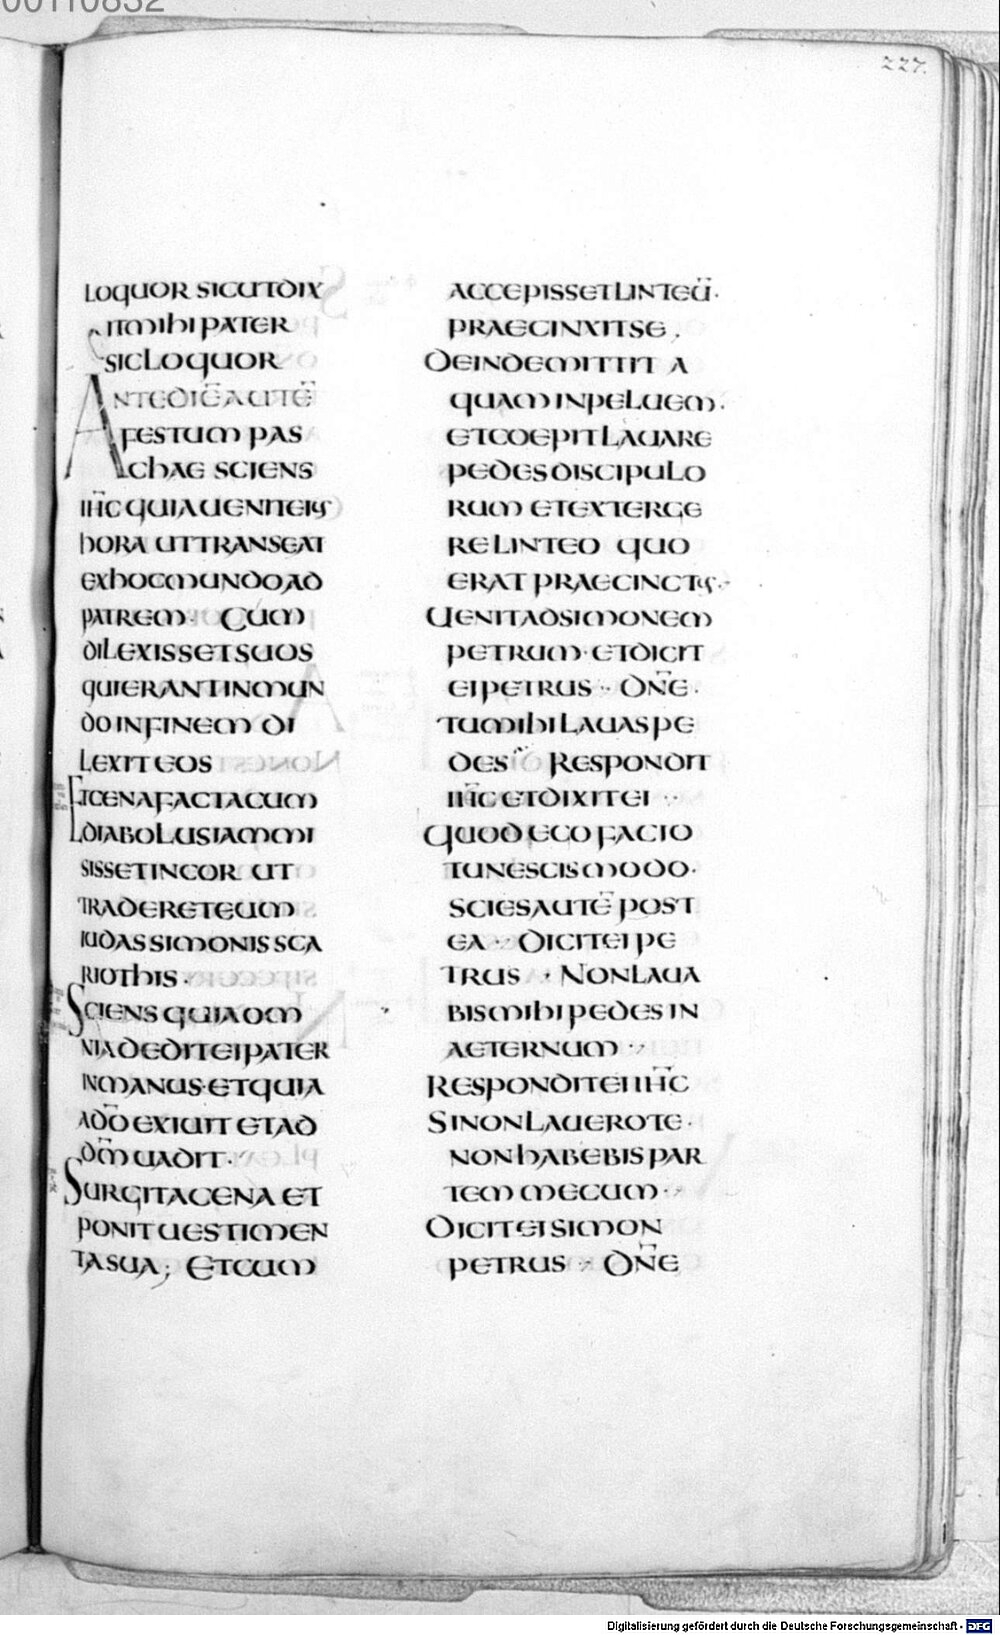 00110832
227.
LOQUOR SICUT DIX
IT MIHI PATER
SIC LOQUOR
ANTE DIĒ AUTĒ
FESTUM PAS
CHAE SCIENS
IHC̄ QUIA UENIT EIUS
HORA UT TRANSEAT
EX HOC MUNDO AD
PATREM· CUM
DILEXISSET SUOS
QUI ERANT IN MUN
DO IN FINEM DI
LEXIT EOS
ET CENA FACTA CUM
DIABOLUS IAM MI
SISSET IN COR UT
TRADERET EUM
IUDAS SIMONIS SCA
RIOTHIS·
SCIENS QUIA OM
NIA DEDIT EI PATER
IN MANUS· ET QUIA
A DŌ EXIUIT ET AD
DM̄ UADIT·
SURGIT A CENA ET
PONIT UESTIMEN
TA SUA; ET CUM
ACCEPISSET LINTEŪ·
PRAECINXIT SE.
DEINDE MITTIT A
QUAM IN PELUEM.
ET COEPIT LAUARE
PEDES DISCIPULO
RUM ET EXTERGE
RE LINTEO QUO
ERAT PRAECINCTUS·
UENIT AD SIMONEM
PETRUM· ET DICIT
EI PETRUS· DN̄E·
TU MIHI LAUAS PE
DES RESPONDIT
IHC̄ ET DIXIT EI
QUOD EGO FACIO
TU NESCIS MODO·
SCIES AUTĒ POST
EA· DICIT EI PE
TRUS· NON LAUA
BIS MIHI PEDES IN
AETERNUM·
RESPONDIT EI IHC̄
SI NON LAUERO TE·
NON HABEBIS PAR
TEM MECUM·
DICIT EI SIMON
PETRUS· DN̄E
Digitalisierung gefördert durch die Deutsche Forschungsgemeinschaft - DFG